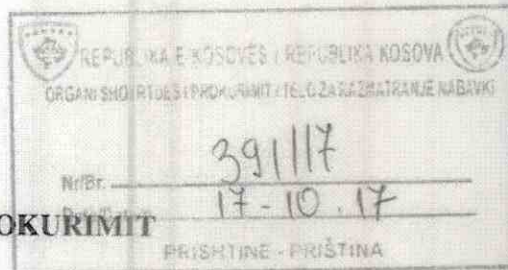 REPUBLIKA E KOSOVËS / REPUBLIKA KOSOVA
ORGANI SHQYRTUES I PROKURIMIT / TELO ZA RAZMATRANJE NABAVKI
391/17
Nr/Br.
17-10.17
OKURIMIT
PRISHTINE - PRIŠTINA